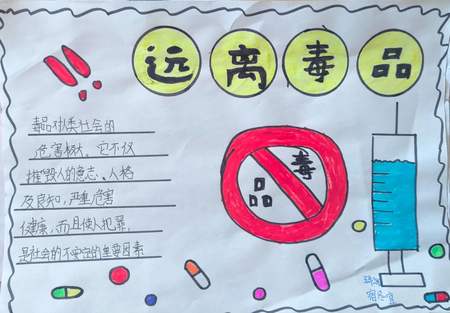 远离毒品
毒品对人类社会的
危害极大，它不仅
摧毁人的意志、人格
及良知，严重危害
健康，而且使人犯罪，
是社会的不安定的重要因素
毒
品